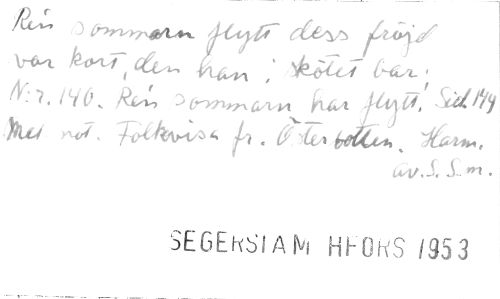 Re'n sommarn flytt dess fröjd
var kort, den han i skötet bar;
N:r. 140. Re'n sommarn har flytt. Sid. 144
Med not. Folkvisa fr. Österbotten. Harm.
av. S. S. m.
SEGERSTAM HFORS 1953